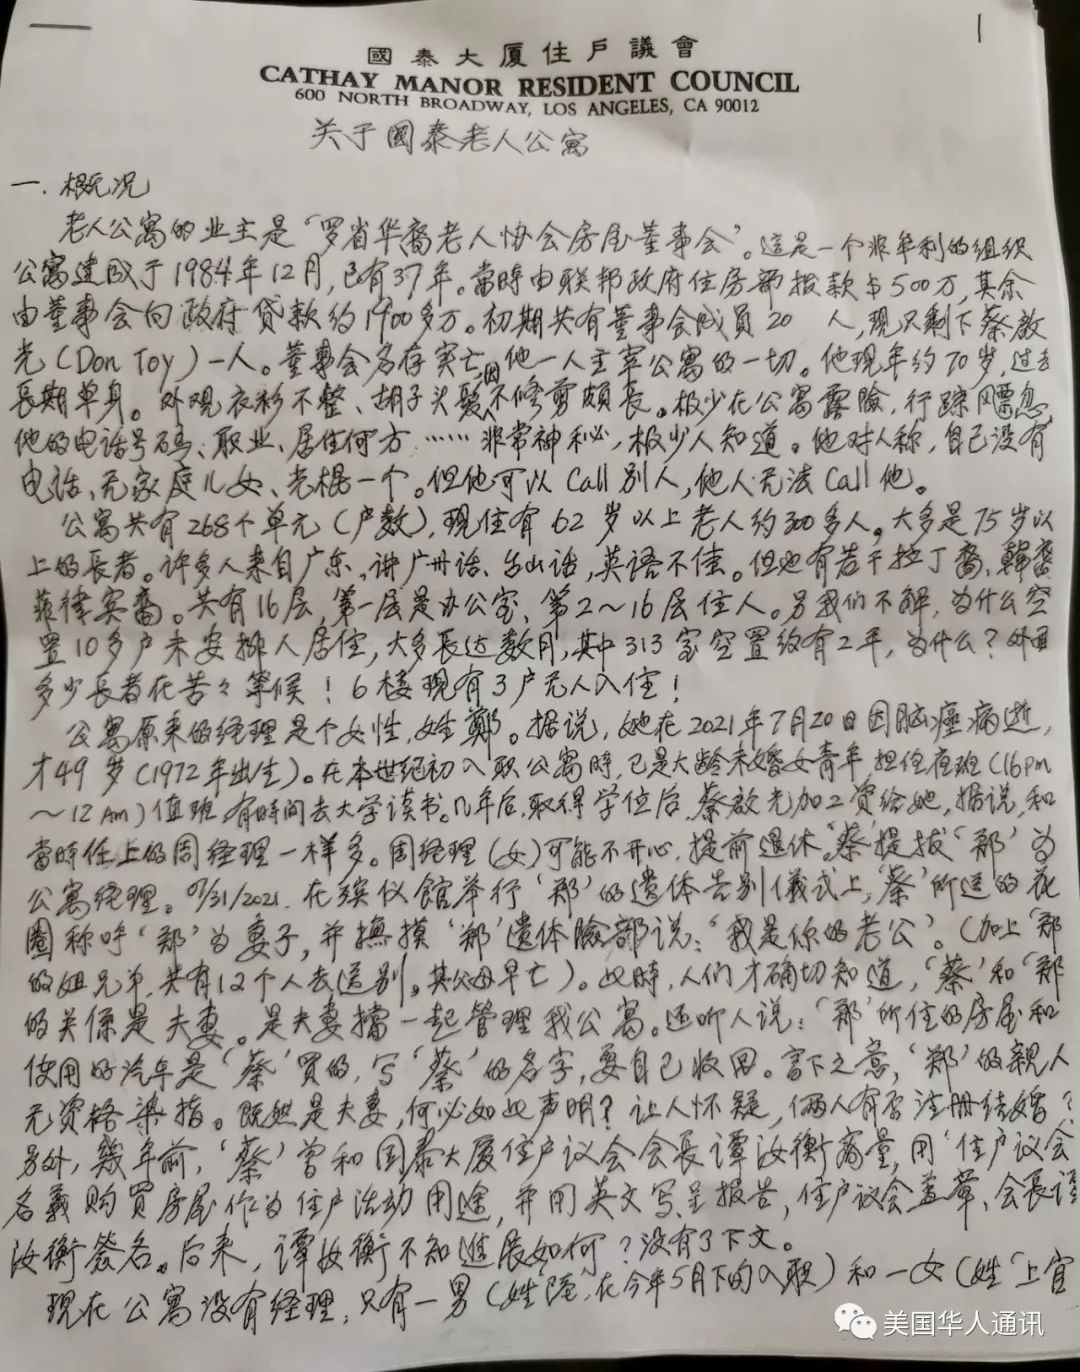 國泰大厦住戶議會
CATHAY MANOR RESIDENT COUNCIL
600 NORTH BROADWAY, LOS ANGELES, CA 90012
关于國泰老人公寓
一. 概况
老人公寓的业主是‘罗省华裔老人协会房屋董事会’。這是一个非牟利的组织
公寓建成于1984年12月,已有37年。當時由联邦政府住房部拨款$500万,其余
由董事会向政府贷款约1900多万。初期共有董事会成員20人,現只剩下蔡啟
光(Don Toy)一人。董事会名存实亡,因他一人主宰公寓的一切。他現年约70岁,过去
長期单身。外观衣衫不整、胡子头髮不修剪頗長。极少在公寓露臉,行踪飄忽,
他的电话号码、职业、居住何方……非常神秘,极少人知道。他对人称,自己没有
电话、无家庭儿女、光棍一个。但他可以Call别人,他人无法Call他。
公寓共有268个单元(户数),現住有62岁以上老人约300多人。大多是75岁以
上的長者。许多人来自广东,讲广州话、台山话,英语不佳。但也有若干拉丁裔、韓裔
菲律宾裔。共有16层,第一层是办公室,第2~16层住人。另我们不解,为什么空
置10多户未安排人居住,大多長达数月,其中313室空置约有2年,为什么?外面
多少長者在苦々等候!6楼現有3户无人入住!
公寓原来的经理是个女性,姓鄭。据说,她在2021年7月20日因脑癌病逝,
才49岁(1972年出生)。在本世纪初入职公寓時,已是大龄未婚女青年,担任夜班(16pm
~12Am)值班,有時间去大学读书。几年后,取得学位后,蔡啟光加工资给她,据说,和
當時任上的周经理一样多。周经理(女)可能不开心,提前退休。‘蔡’提拔‘郑’为
公寓经理。07/31/2021.在殡仪館举行‘郑’的遗体告别儀式上,‘蔡’所送的花
圈称呼‘郑’为妻子,并撫摸‘郑’遗体臉部说:‘我是你的老公’。(加上‘郑’
的姐兄弟,共有12个人去送别。其父母早亡)。此時,人们才确切知道,‘蔡’和‘郑’
的关係是夫妻。是夫妻擋一起管理我公寓。还听人说:‘郑’所住的房屋和
使用的汽车是‘蔡’買的,写‘蔡’的名字,要自己收回。言下之意,‘郑’的親人
无资格染指。既然是夫妻,何必如此声明?让人怀疑,俩人有否注册结婚?
另外,幾年前,‘蔡’曾和国泰大厦住户议会会長谭汝衡商量,用‘住户议会’
名義购買房屋作为住户活动用途,并用英文写呈报告,住户议会盖章、会長谭
汝衡签名。后来,谭汝衡不知進展如何?没有了下文。
現在公寓没有经理,只有一男(姓‘陸’,在今年5月下旬入职)和一女(姓‘上官
美国华人通讯